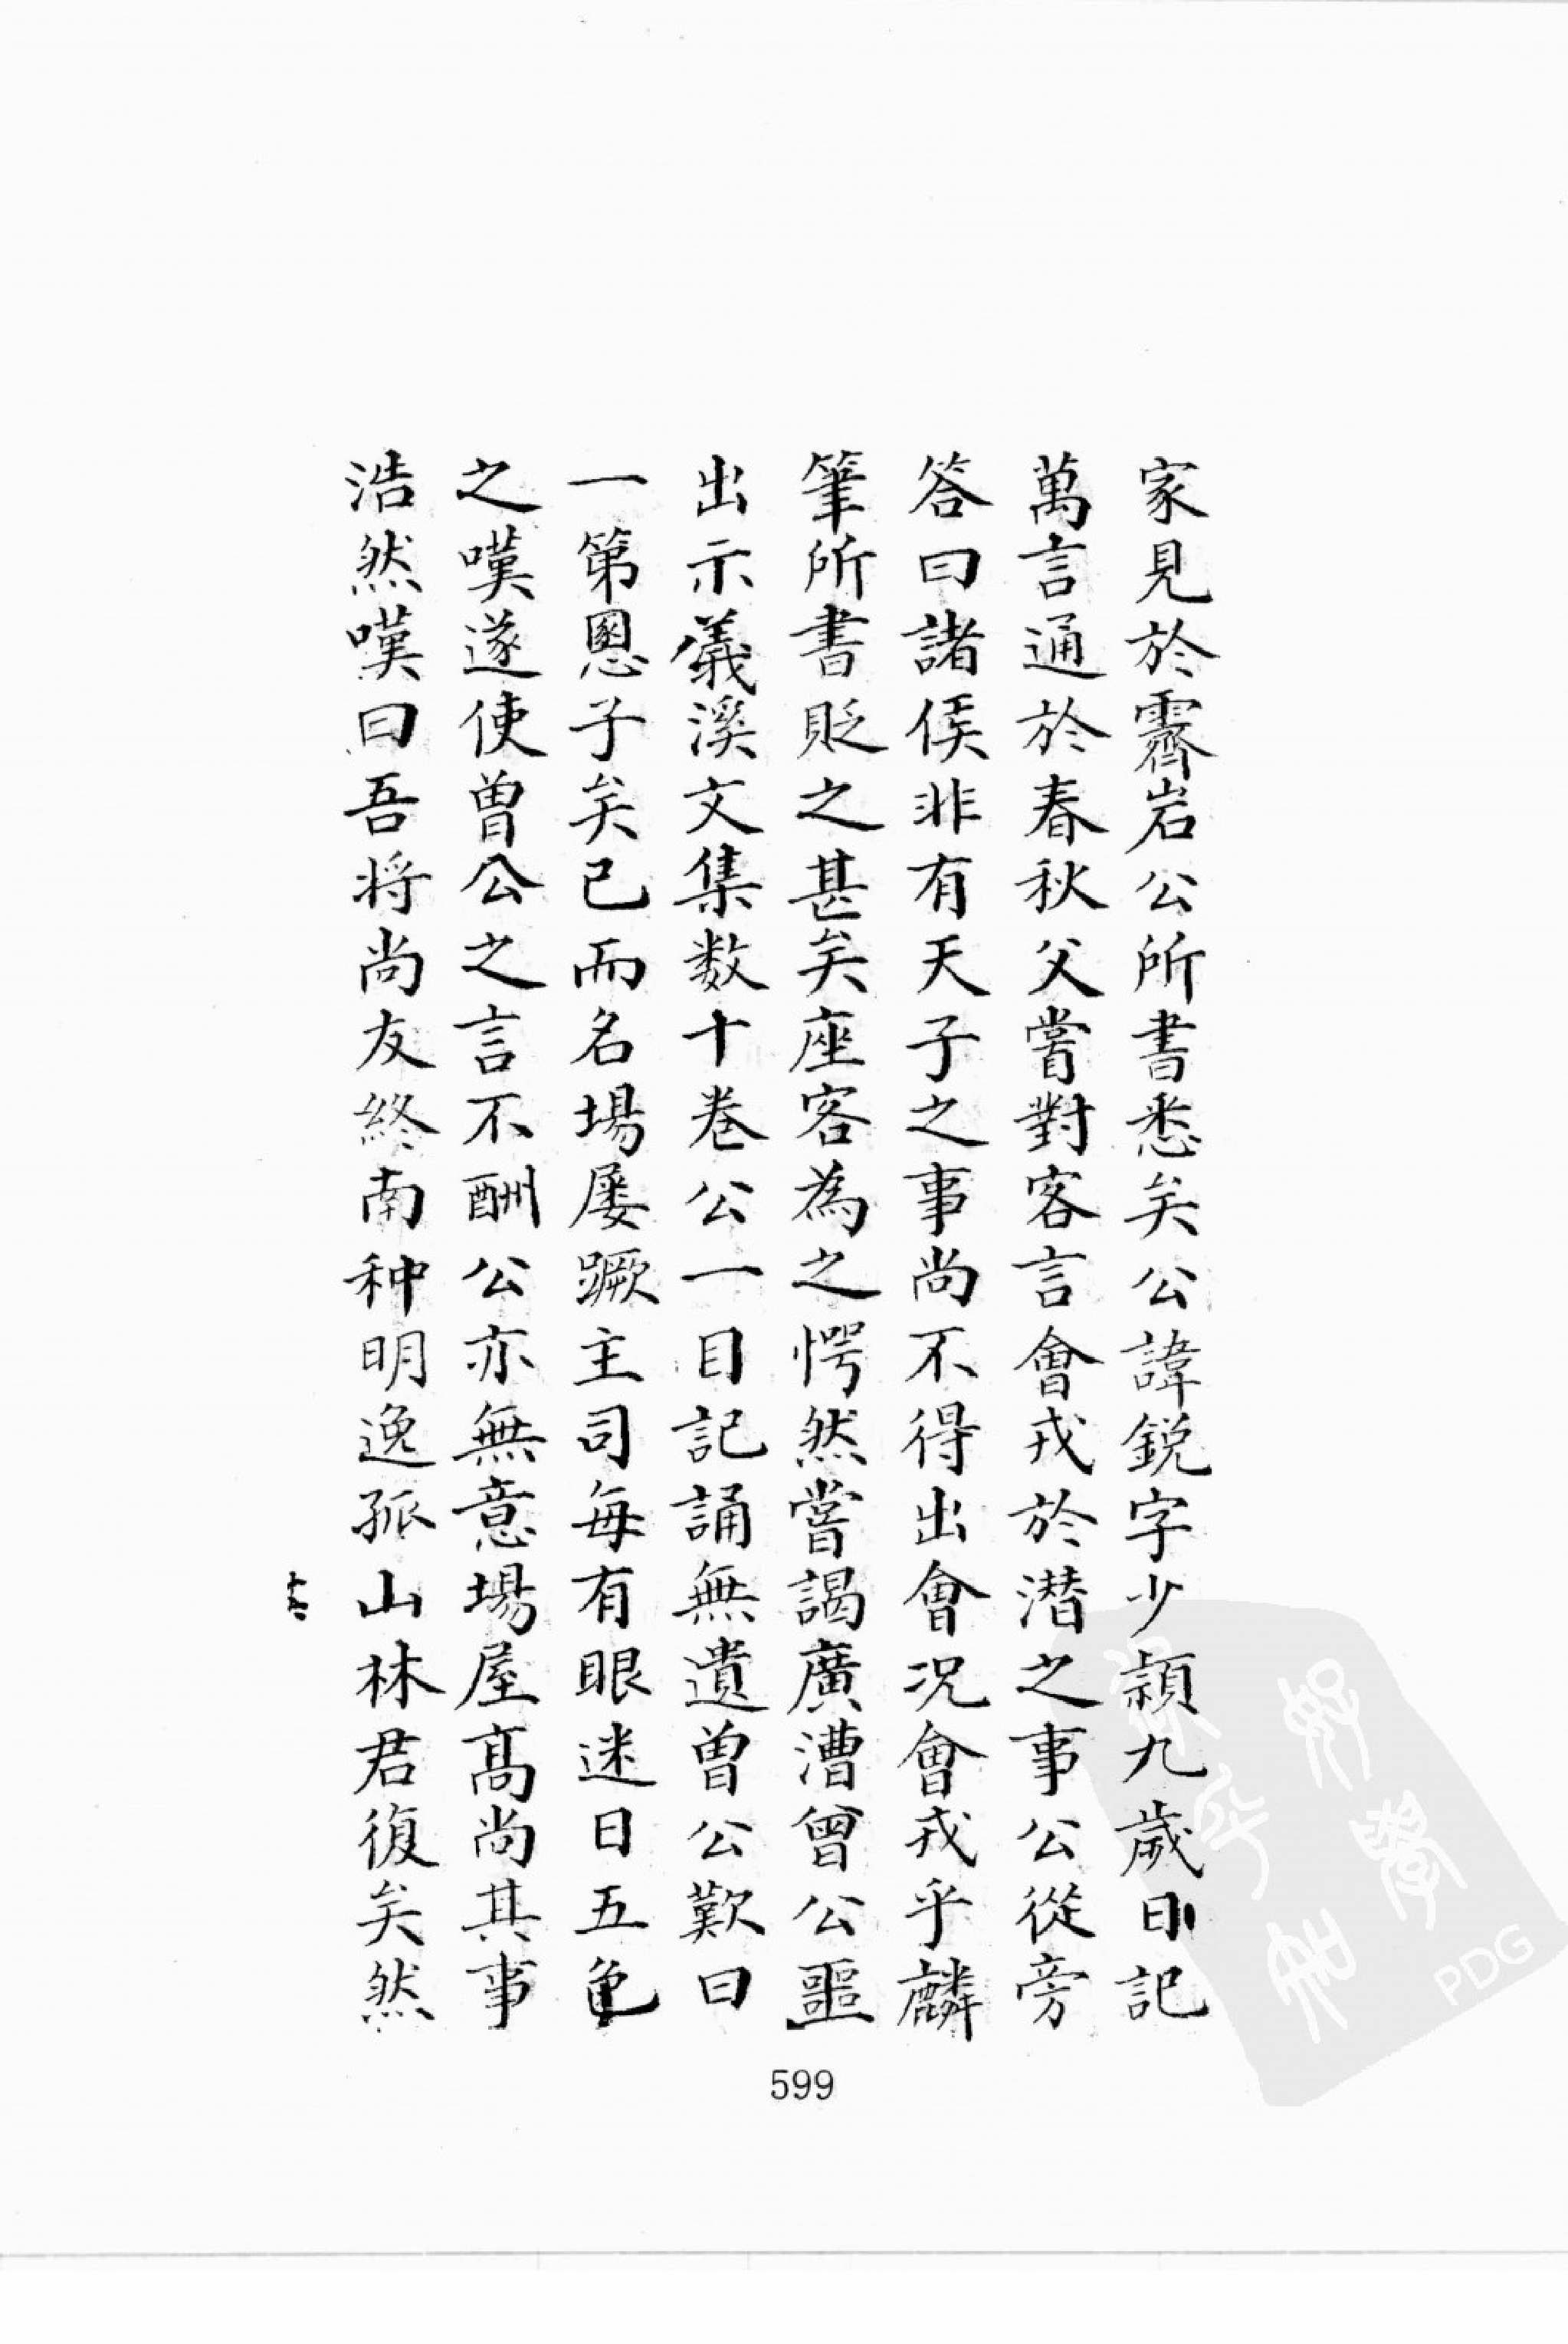 家見於霽岩公所書悉矣公諱鋭字少潁九歲日記
萬言通於春秋父嘗對客言會戎於潜之事公從旁
答曰諸侯非有天子之事尚不得出會况會戎乎麟
筆所書貶之甚矣座客為之愕然嘗謁廣漕曾公噩
出示儀溪文集数十卷公一目記誦無遺曾公歎曰
一第恩子矣已而名場屡蹶主司每有眼迷日五色
之嘆遂使曾公之言不酬公亦無意場屋髙尚其事
浩然嘆曰吾将尚友終南种明逸孤山林君復矣然
599
PDG